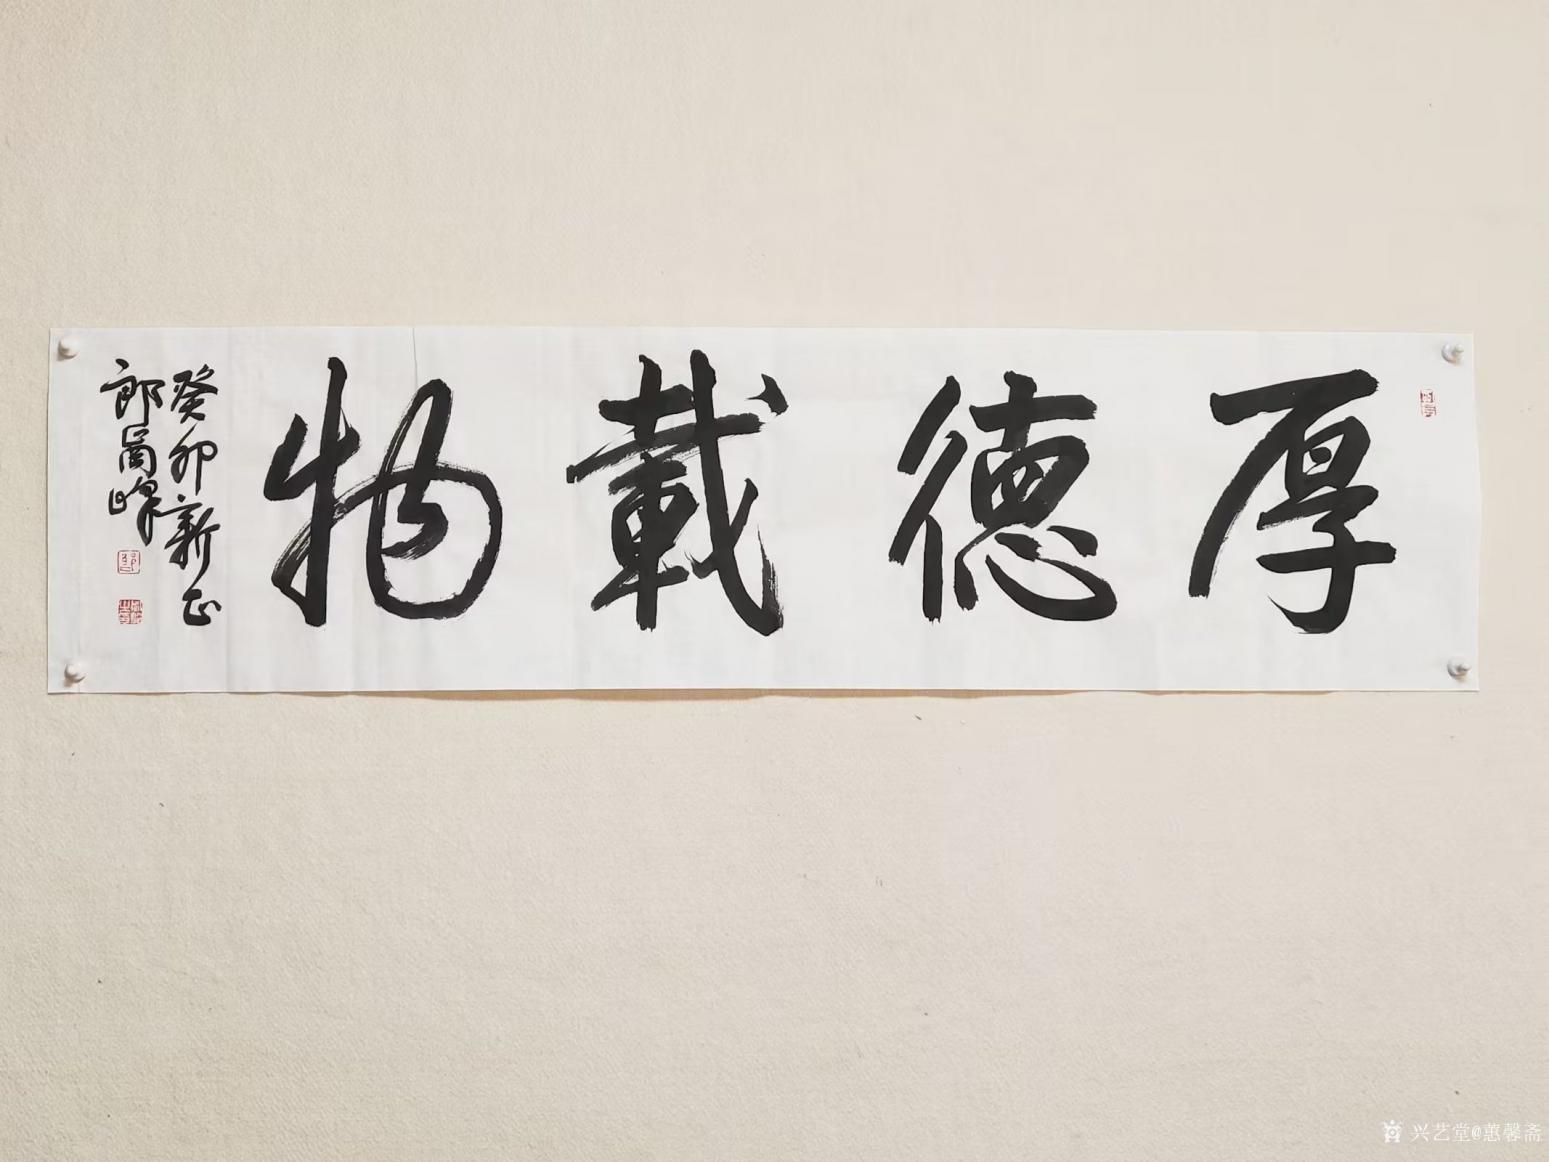 厚德載物
癸卯新正
郎高峰
兴艺堂@蕙馨斋